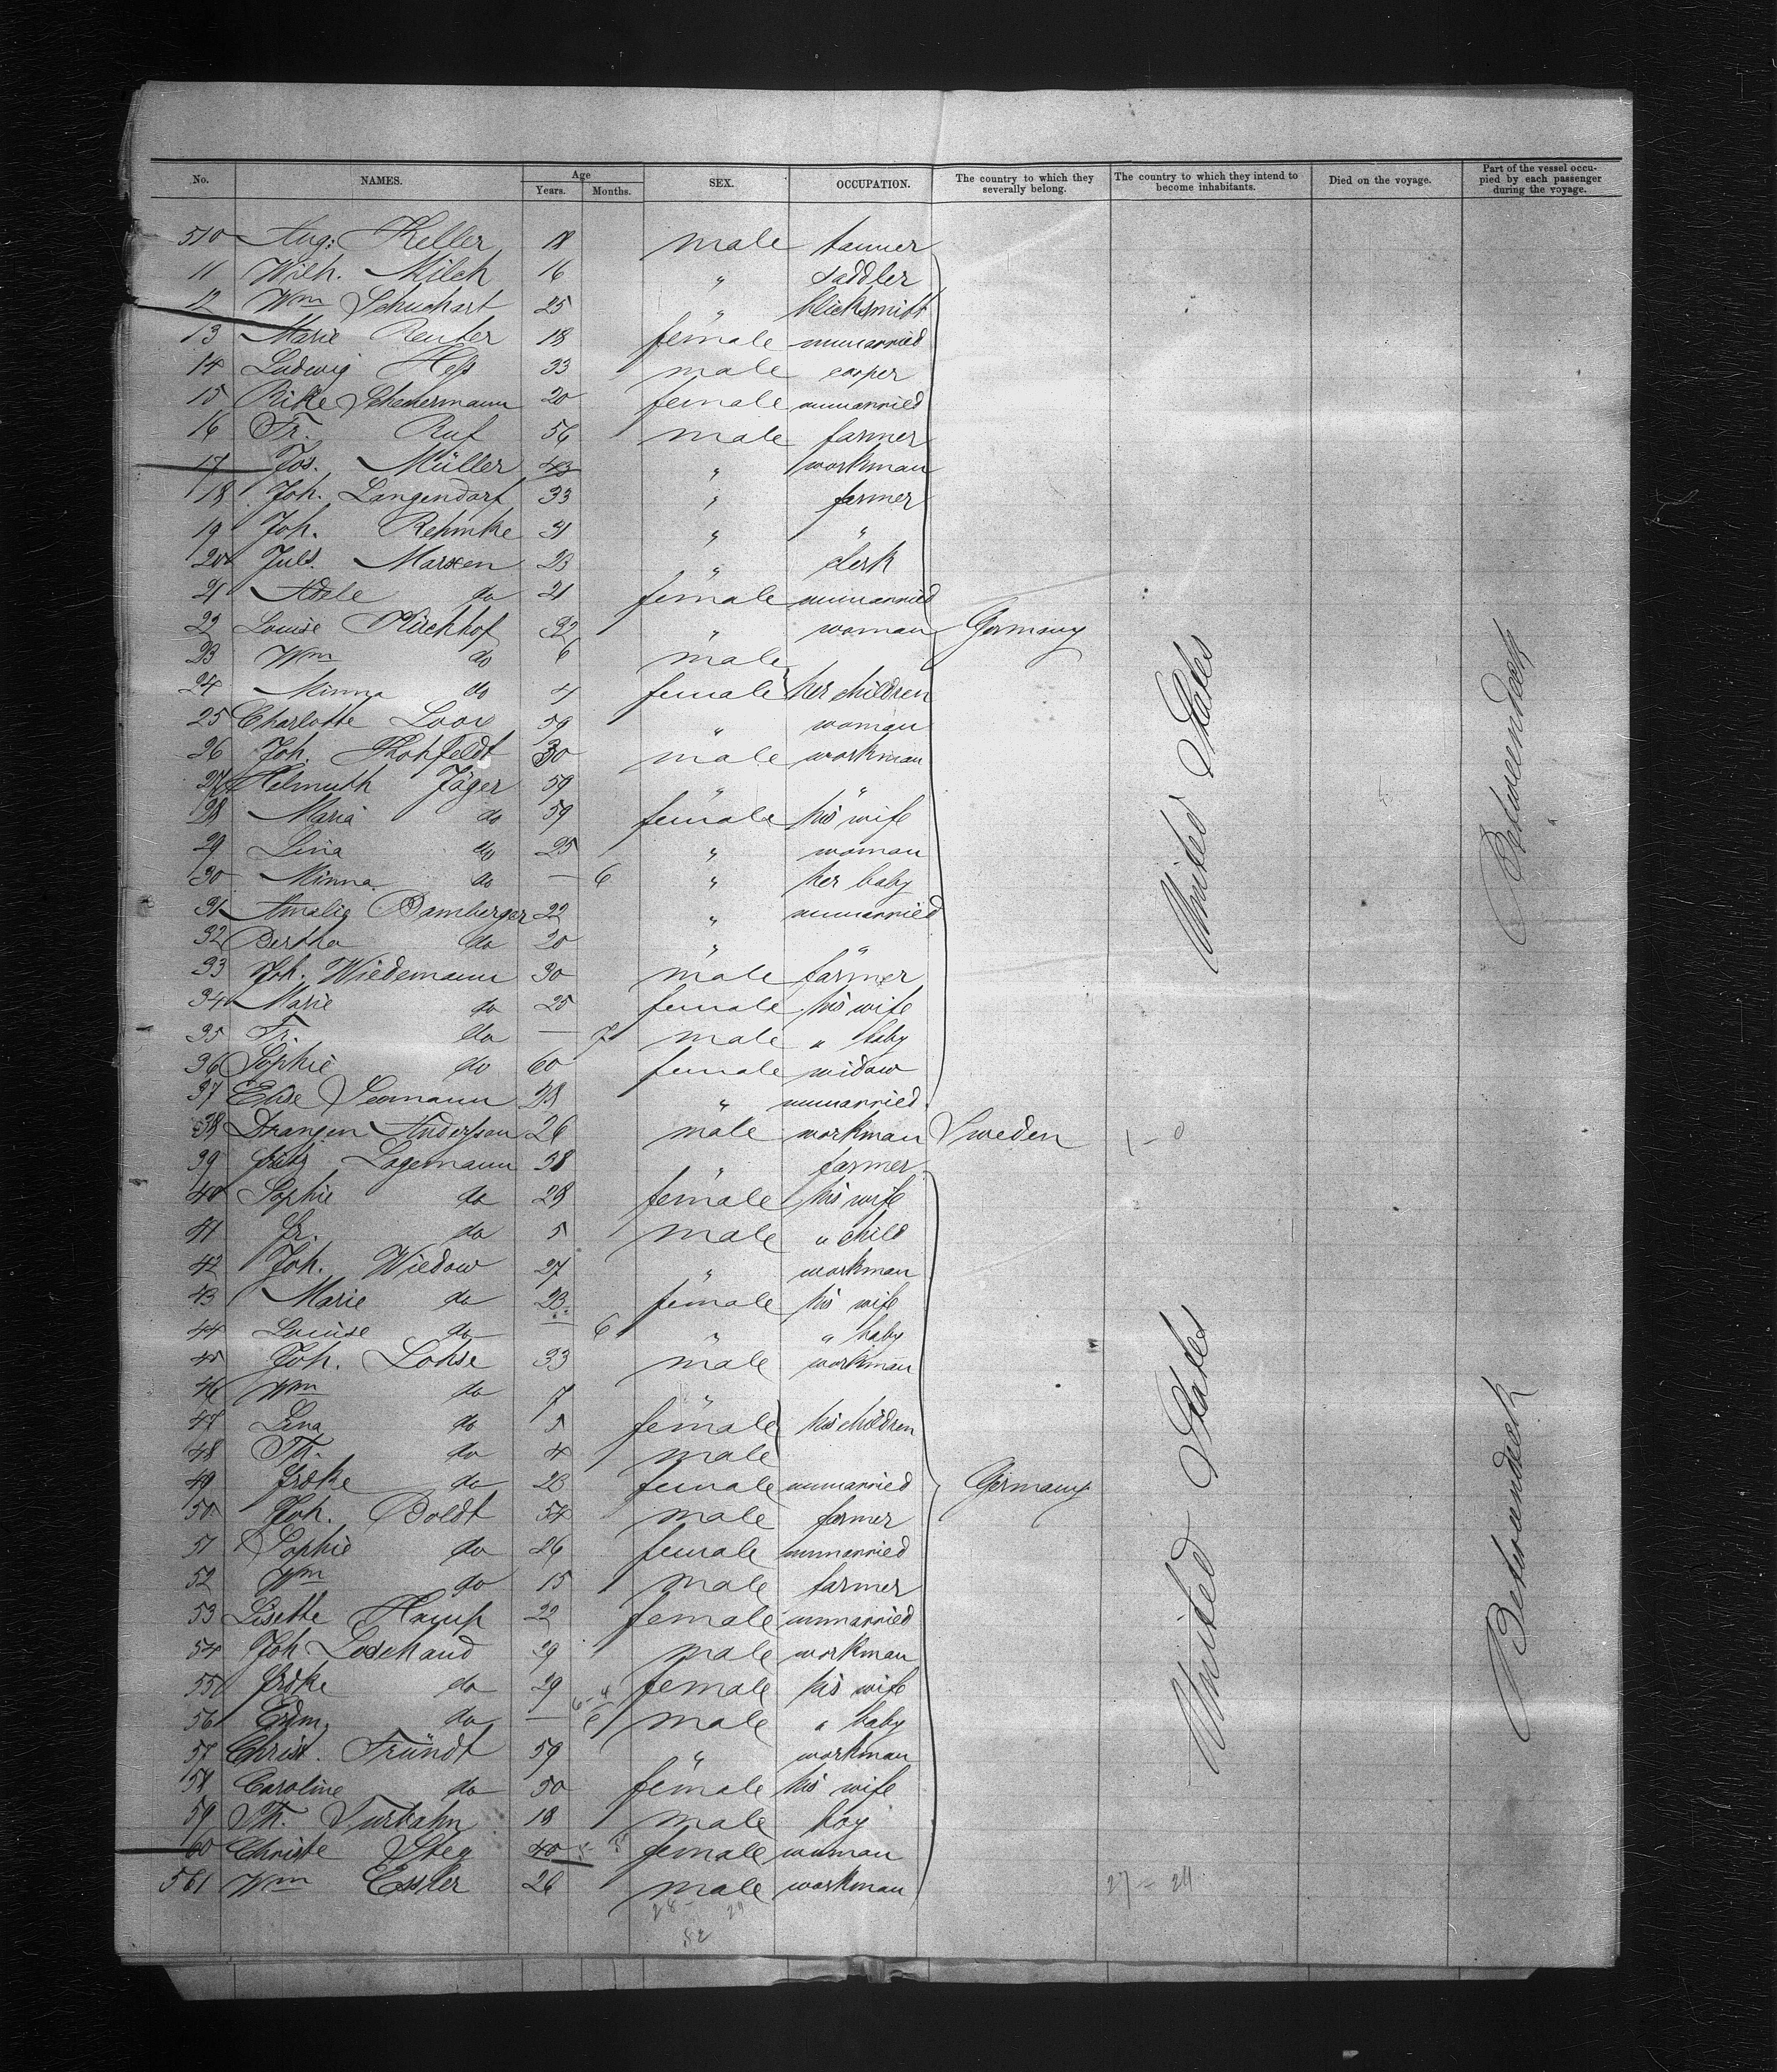 No. NAMES. Age Years. Months. SEX. OCCUPATION. The country to which they severally belong. The country to which they intend to become inhabitants. Died on the voyage. Part of the vessel occupied by each passenger during the voyage.
510 Aug: Keller 18 male tanner
11 Wilh. Milch 16 " saddler
12 Wm Schuchart 25 "
13 Marie Reuter 18 female unmarried
14 Ludwig Hess 33 male cooper
15 Rike Scheuermann 20 female unmarried
16 Fr. Ruf 56 male farmer
17 Jos. Müller 43 " workman
18 Joh. Langendorf 33 " farmer
19 Joh. Rehmke 31 " "
20 Juls. Marxen 23 " clerk
21 Adele do 21 female unmarried
22 Louise Kirchhof 32 " woman Germany
23 Wm do 6 male
24 Minna do 4 female her children United States Betweendeck
25 Charlotte 59 " woman
26 Joh. 30 male workman
27 Helmuth Jäger 59 " "
28 Maria do 59 female his wife
29 Lina do 25 " woman
30 Minna do — 6 " her baby
31 Amalie Bamberger 22 " unmarried
32 Bertha do 20 " "
33 Joh. Wiedemann 30 male farmer
34 Marie do 25 female his wife
35 Fr. do — 7 male " baby
36 Sophie do 60 female widow
37 Elise Seemann 28 " unmarried
38 Andersson 26 male workman Sweden 1 - 0
39 Fritz Lagemann 38 " farmer
40 Sophie do 28 female his wife
41 Fr. do 5 male " child
42 Joh. Wiedow 27 " workman
43 Marie do 23 female his wife
44 Louise do — 6 " " baby
45 Joh. Lohse 33 male workman
46 Wm do 7 "
47 Lina do 5 female his children
48 Th. do 4 male
49 Frdke do 23 female unmarried Germany United States Betweendeck
50 Joh. Boldt 54 male farmer
51 Sophie do 26 female unmarried
52 Wm do 15 male farmer
53 Lisette 22 female unmarried
54 Joh. Loschand 29 male workman
55 Frdke do 29 female his wife
56 Erdm. do — 6 male " baby
57 Christ. Fründt 59 " workman
58 Caroline do 50 female his wife
59 Th. Turbahn 18 male boy
60 Christe Steg 40 female woman
561 Wm Essler 26 male workman 27 - 24
28 - 24
52